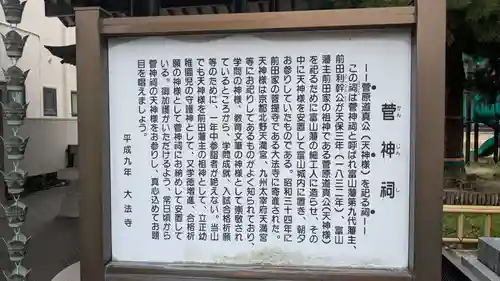 菅神祠
かん じん し
――菅原道真公(天神様)を祀る祠――
この祠は菅神祠と呼ばれ富山藩第九代藩主、
前田利幹公が天保三年(一八三二年)、富山
藩主前田家の祖神である菅原道真公(天神様)
を祀るために富山藩の細工人に造らせ、その
中に天神様を安置して富山城内に置き、朝夕
お参りしていたものである。昭和三十四年に
前田家の菩提寺である大法寺に寄進された。
天神様は京都北野天満宮、九州太宰府天満宮
等にお祀りしてあるものがよく知られており、
学問の神様、教育文筆の神様として崇敬され
ているところから、学問成就、入試合格祈願
等のために、一年中参詣者が絶えない。当山
でも天神様を前田藩主の祖神として、立正幼
稚園児の守護神として、又学徳増進、合格祈
願の神様として菅神祠にお納めして安置して
いる。御加護がいただけるよう、常日頃から
菅神祠の天神様をお参りし、真心込めてお題
目を唱えましょう。
平成九年 大法寺